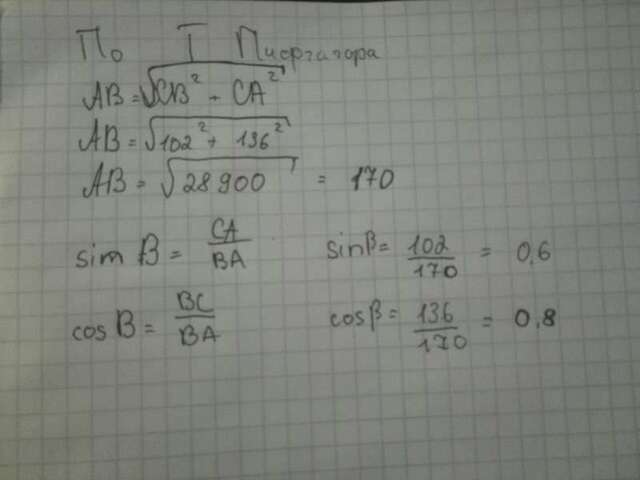 По Т Пифагора
AB = √CB² + CA²
AB = √102² + 136²
AB = √28900 = 170
sim B = CA/BA sinβ = 102/170 = 0,6
cos B = BC/BA cosβ = 136/170 = 0,8